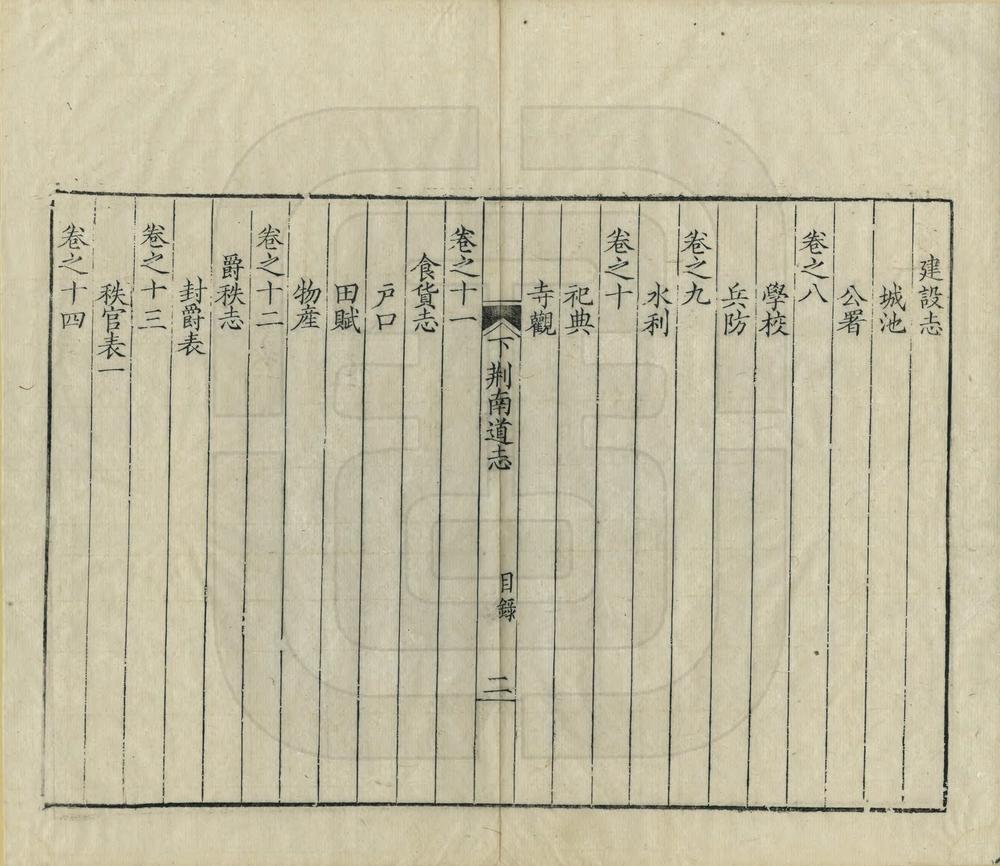 建設志
城池
公署
卷之八
學校
兵防
卷之九
水利
卷之十
祀典
寺觀
下荆南道志
目錄
二
卷之十一
食貨志
戶口
田賦
物產
卷之十二
爵秩志
封爵表
卷之十三
秩官表一
卷之十四